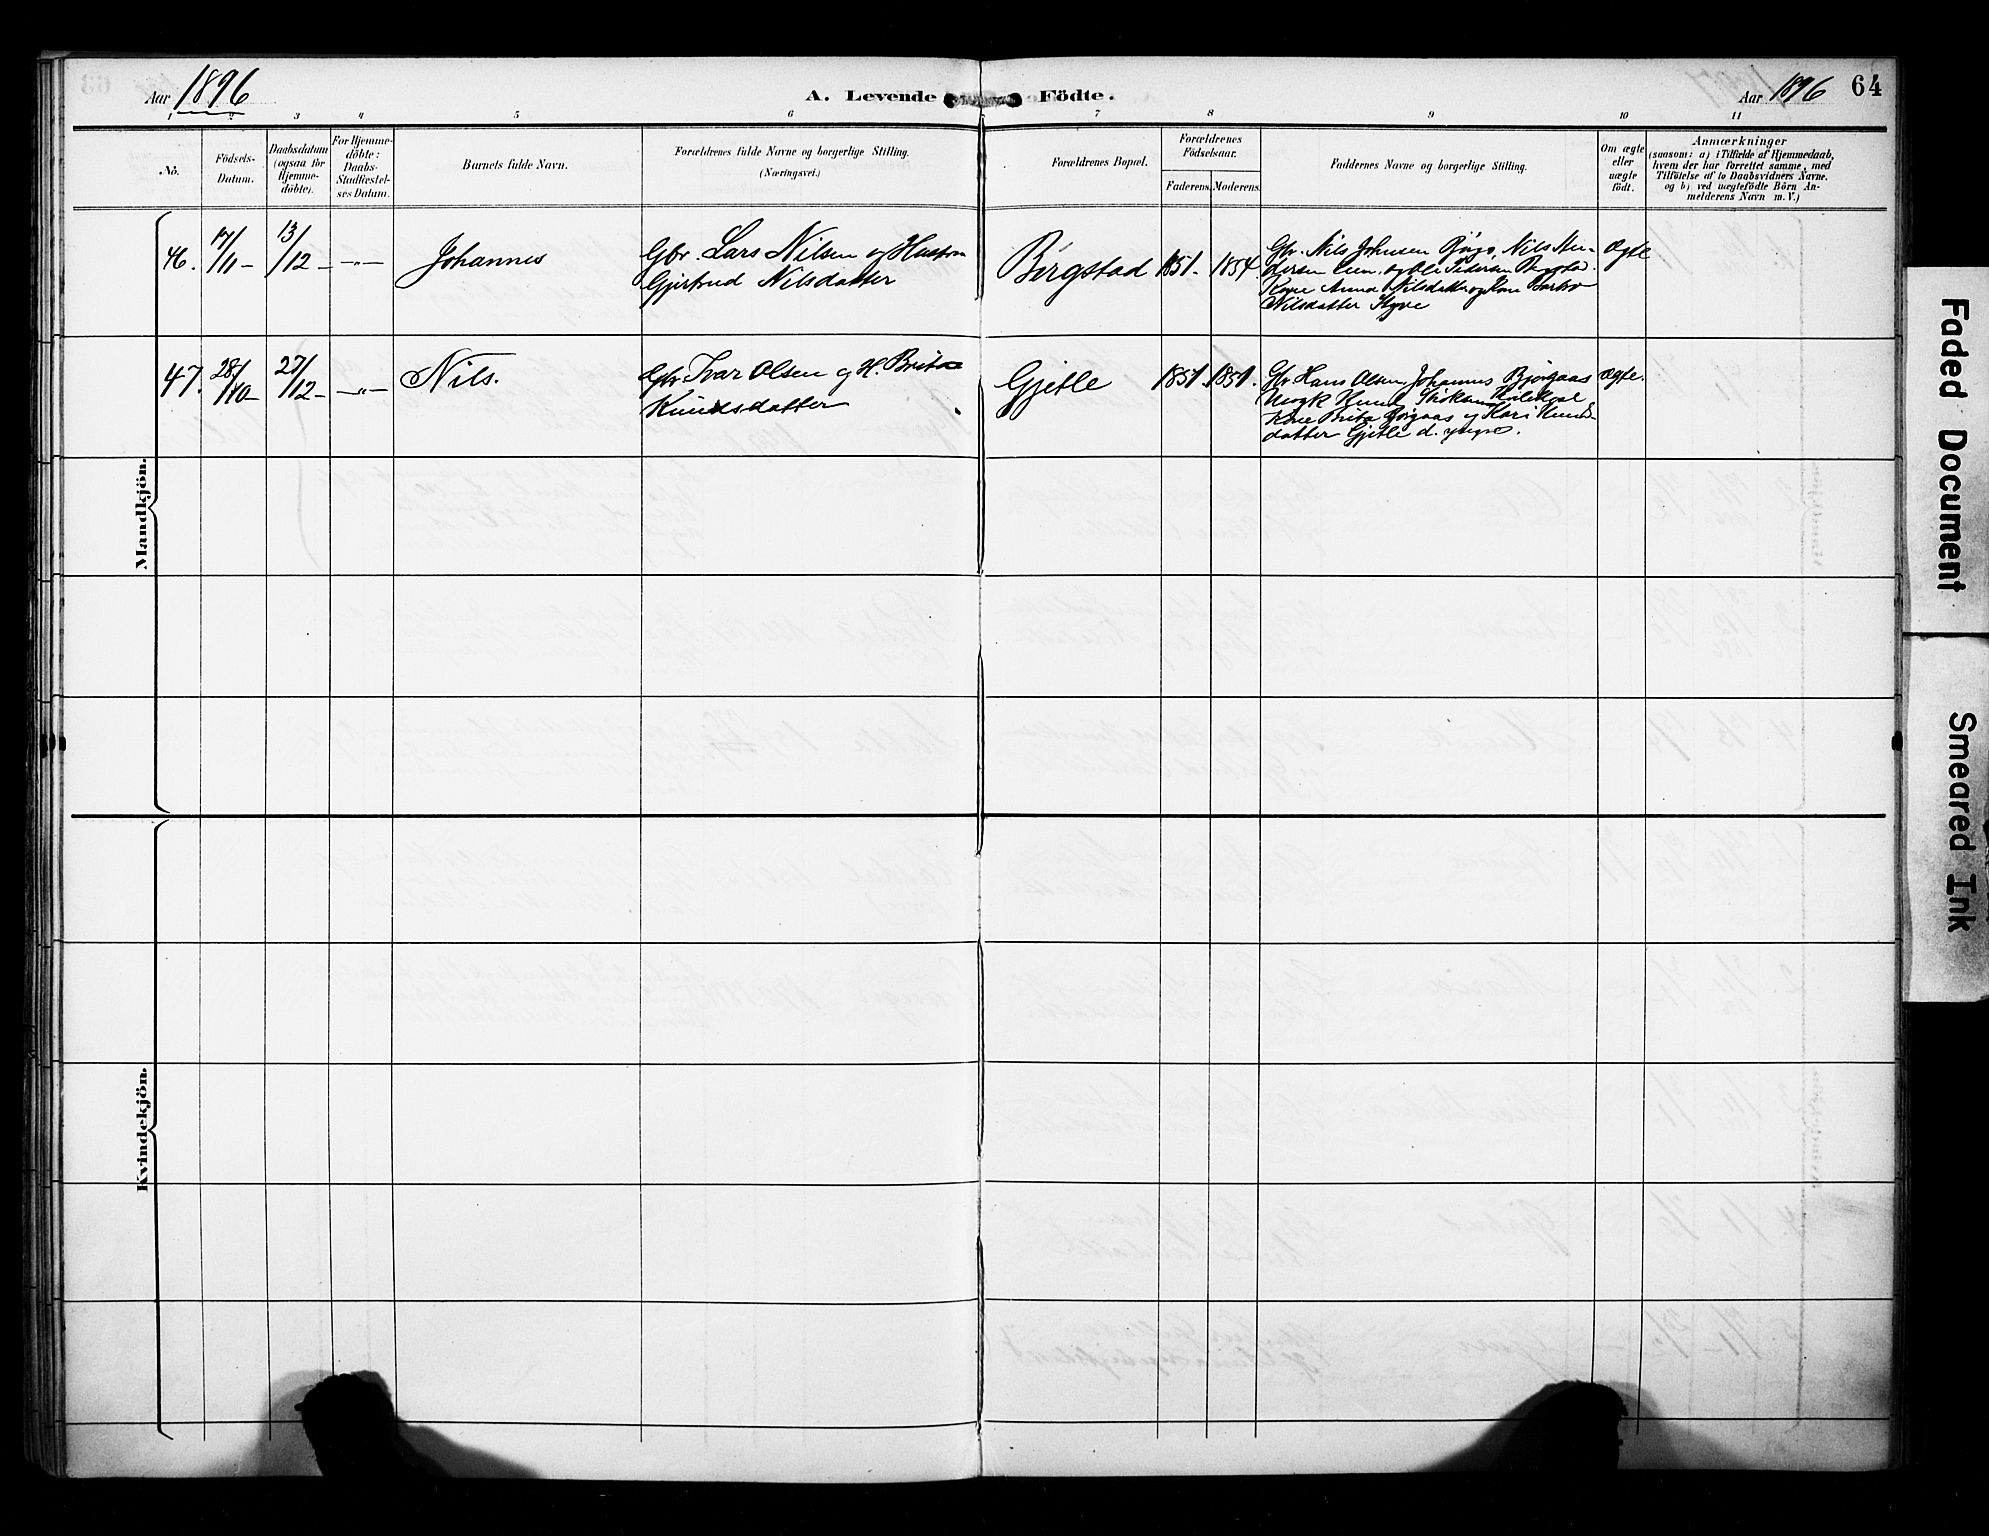 Aar 1896
A. Levende Födte.
Aar 1896
64
1 2 3 4 5 6 7 8 9 10 11
No.
Födsels-
Datum.
Daabsdatum
(ogsaa for
Hjemme-
döbte).
For Hjemme-
döbte:
Daabs-
Stadfæstel-
ses Datum.
Barnets fulde Navn.
Forældrenes fulde Navne og borgerlige Stilling.
(Næringsvei.)
Forældrenes Bopæl.
Forældrenes
Födselsaar.
Faderens. Moderens.
Faddernes Navne og borgerlige Stilling.
Om ægte
eller
uægte
födt.
Anmærkninger
(saasom: a) i Tilfælde af Hjemmedaab,
hvem der har forrettet samme, med
Tilföielse af to Daabsvidners Navne.
og b) ved uægtefödte Börn An-
melderens Navn m. V.)
Mandkjön.
46. 17/11 - 13/12 - -"- Johannes
Gbr. Lars Nilsen og Hustru
Gjertrud Nilsdatter
Bergstad 1851. 1854
Gbr. Nils Johnsen
Nilsdatter
Ægte
47. 28/10 - 27/12 - -"- Nils.
Gbr Ivar Olsen og H. Brita
Knudsdatter
Gjetle 1851. 1851.
Gbr Hans Olsen, Johannes Bjørgaas
Kone Brita og Kari Knuds-
datter Gjetle d. yngre.
Ægte.
Kvindekjön.
Faded Document
Smeared Ink